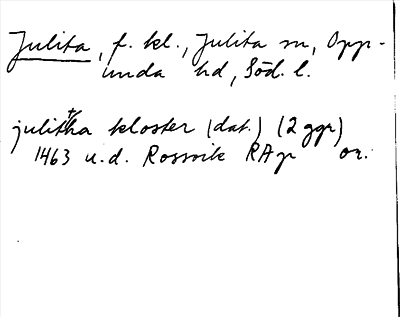 Julita, f. kl., Julita sn, Opp-
unda hd, Söd. l.
julitha kloster (dat.) (2 ggr)
1463 u.d. Rossvik RAp or.